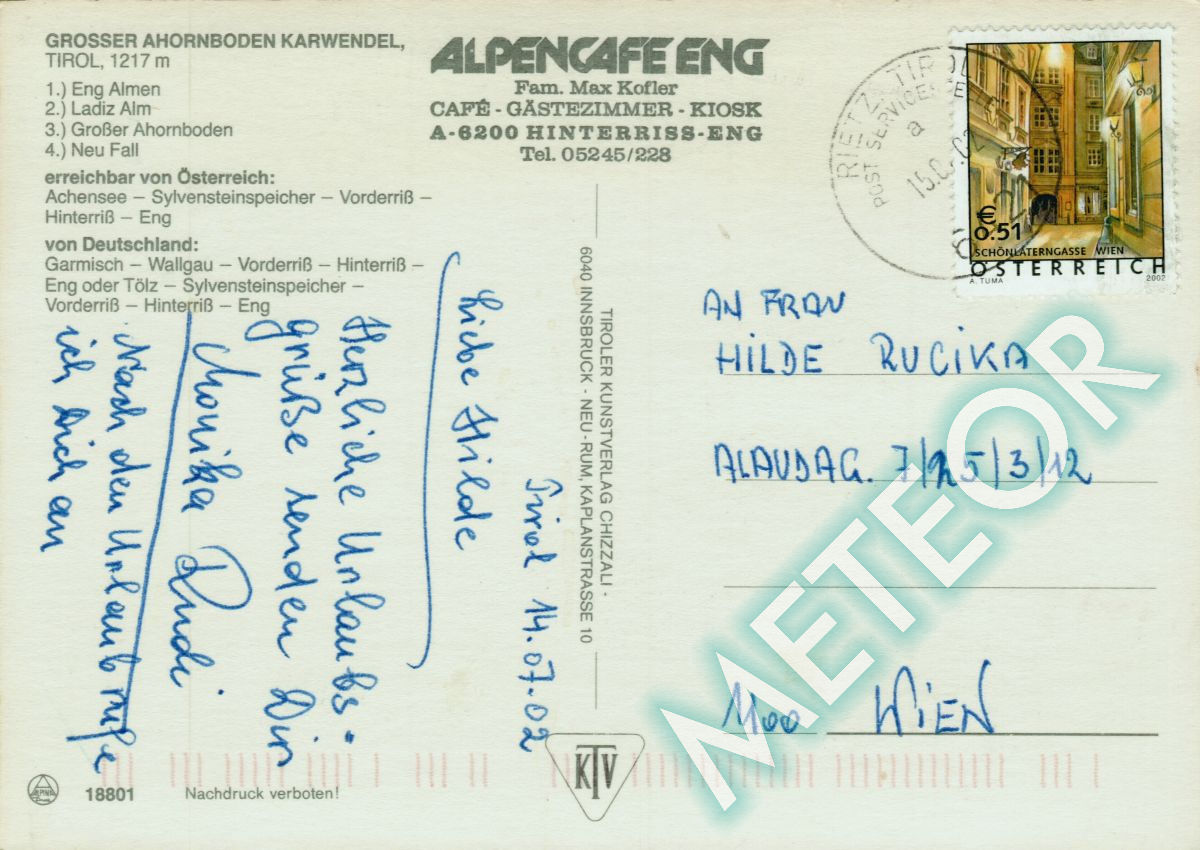 GROSSER AHORNBODEN KARWENDEL,
TIROL, 1217 m
1.) Eng Almen
2.) Ladiz Alm
3.) Großer Ahornboden
4.) Neu Fall
erreichbar von Österreich:
Achensee – Sylvensteinspeicher – Vorderriß –
Hinterriß – Eng
von Deutschland:
Garmisch – Wallgau – Vorderriß – Hinterriß –
Eng oder Tölz – Sylvensteinspeicher –
Vorderriß – Hinterriß – Eng
ALPENCAFE ENG
Fam. Max Kofler
CAFÉ - GÄSTEZIMMER - KIOSK
A-6200 HINTERRISS-ENG
Tel. 05245/228
Tirol 14.07.02
Liebe Hilde
Herzliche Urlaubs=
grüße senden Dir
Monika Rudi
Nach den Urlaub rufe
ich Dich an
TIROLER KUNSTVERLAG CHIZZALI -
6040 INNSBRUCK - NEU-RUM, KAPLANSTRASSE 10
RIETZ TIROL
POST SERVICE
a
15.0
€
0.51
SCHÖNLATERNGASSE WIEN
ÖSTERREICH
A. TUMA 2002
AN FRAU
HILDE RUCIKA
ALAUDAG. 7/25/3/12
1100 WIEN
METEOR
KTV
ALPINA
18801 Nachdruck verboten!